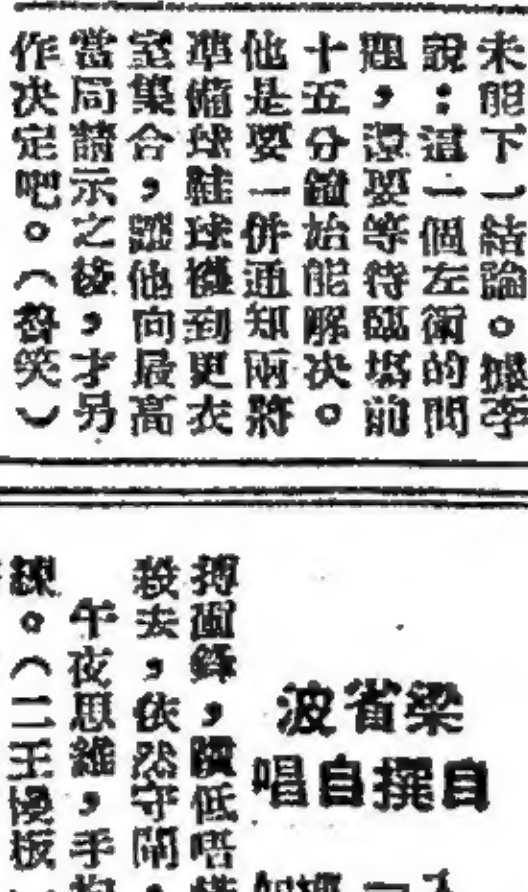 未能下一結論。據李
說：這一個左衛的問
題，還要等待臨塲前
十五分鐘始能解决。
他是要一併通知兩將
準備球鞋球襪到更衣
室集合，躀他向最高
當局請示之後，才另
作决定吧。（督笑）
梁省波
自撰自唱
搏面鋒，隙低唔
殺去，依然守閘，
午夜思維，手抱
練。（二王慢板）